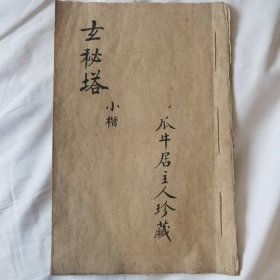 玄秘塔
小楷
瓜牛居主人珍藏